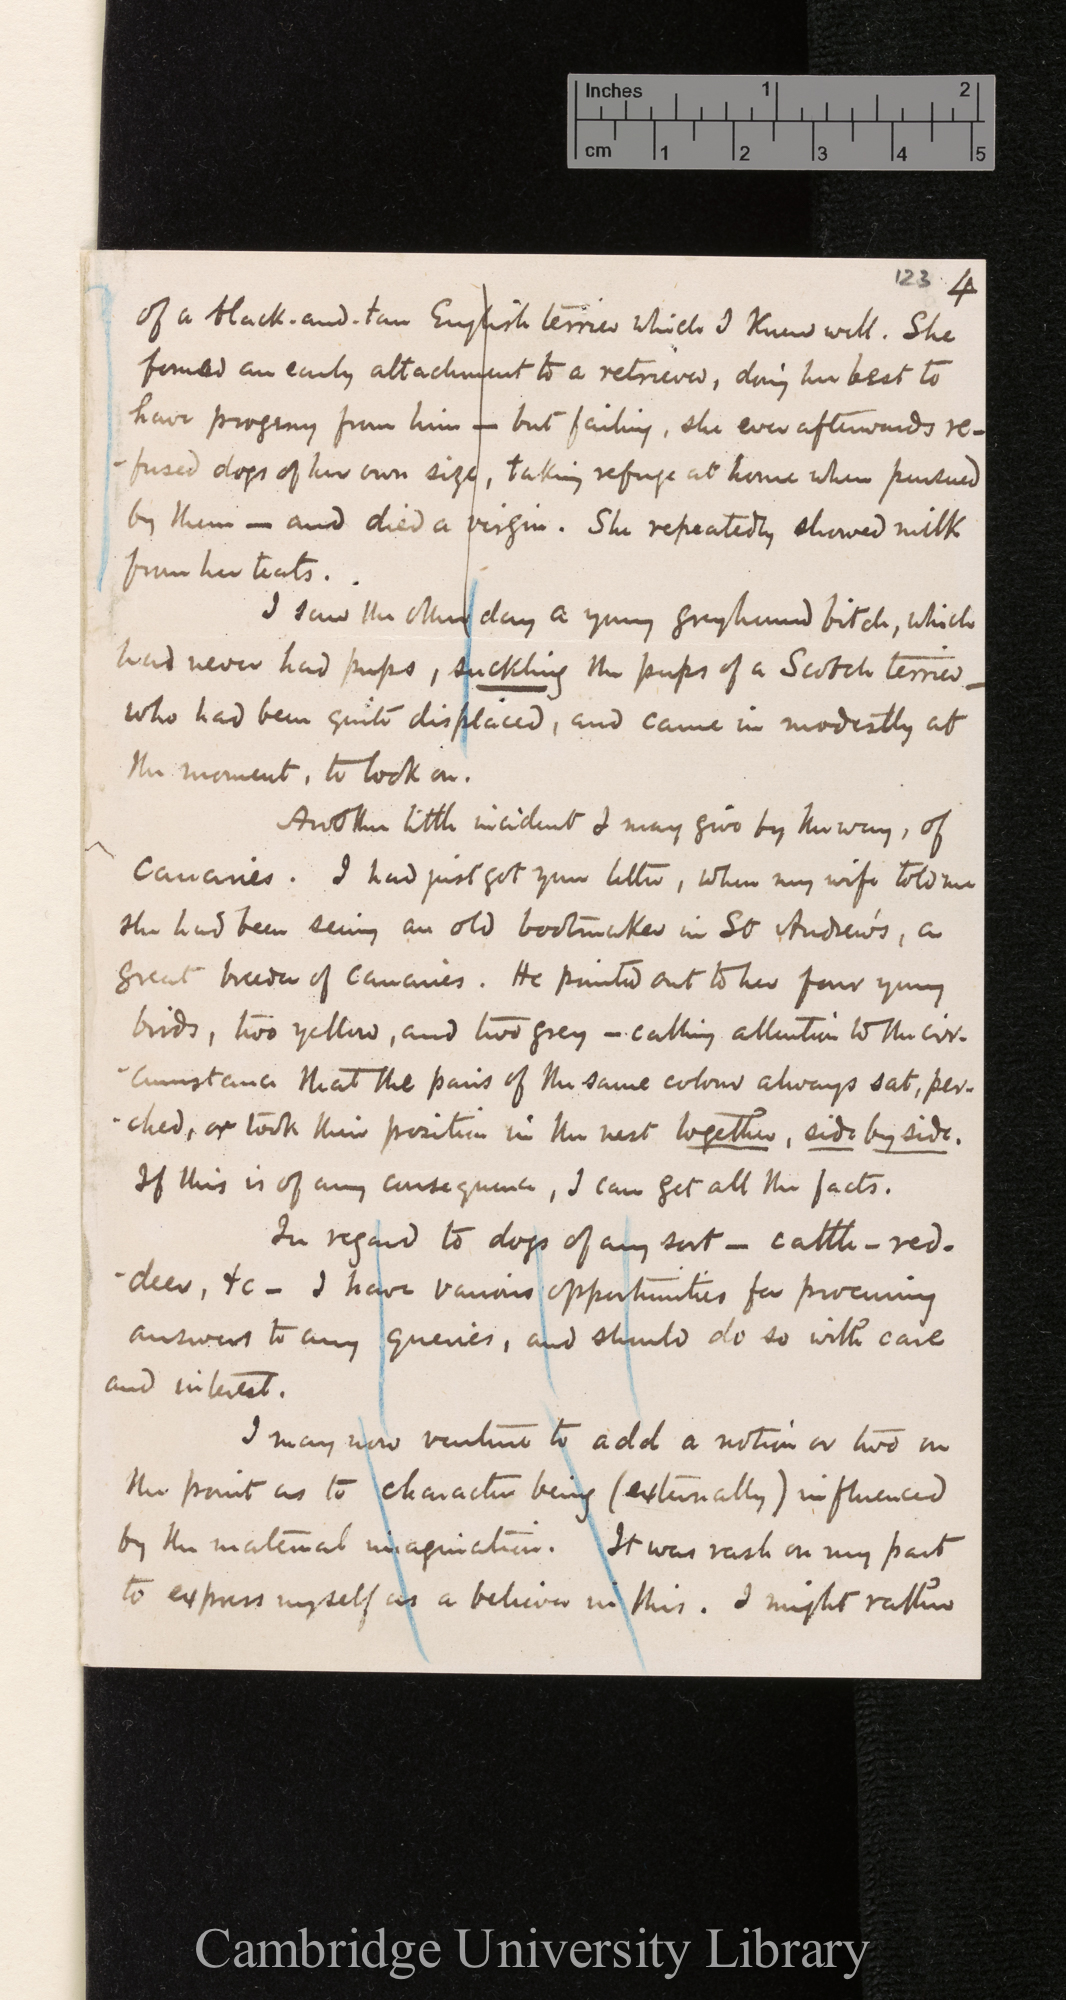 Inches 1 2
cm 1 2 3 4 5
123 4
of a black-and-tan English terrier which I knew well. She
formed an early attachment to a retriever, doing her best to
have progeny from him — but failing, she ever afterwards re-
-fused dogs of her own size, taking refuge at home when pursued
by them — and died a virgin. She repeatedly showed milk
from her teats.
I saw the other day a young greyhound bitch, which
had never had pups, suckling the pups of a Scotch terrier —
who had been quite displaced, and came in modestly at
the moment, to look on.
Another little incident I may give by the way, of
Canaries. I had just got your letter, when my wife told me
she had been seeing an old bootmaker in St Andrew's, a
great breeder of canaries. He pointed out to her four young
birds, two yellow, and two grey — calling attention to the cir-
-cumstance that the pairs of the same colour always sat, per-
-ched, or took their position in the nest together, side by side.
If this is of any consequence, I can get all the facts.
In regard to dogs of any sort — cattle — red-
-deer, &c — I have various opportunities for procuring
answers to any queries, and should do so with care
and interest.
I may now venture to add a notion or two on
the point as to character being (externally) influenced
by the maternal imagination. It was rash on my part
to express myself as a believer in this. I might rather
Cambridge University Library